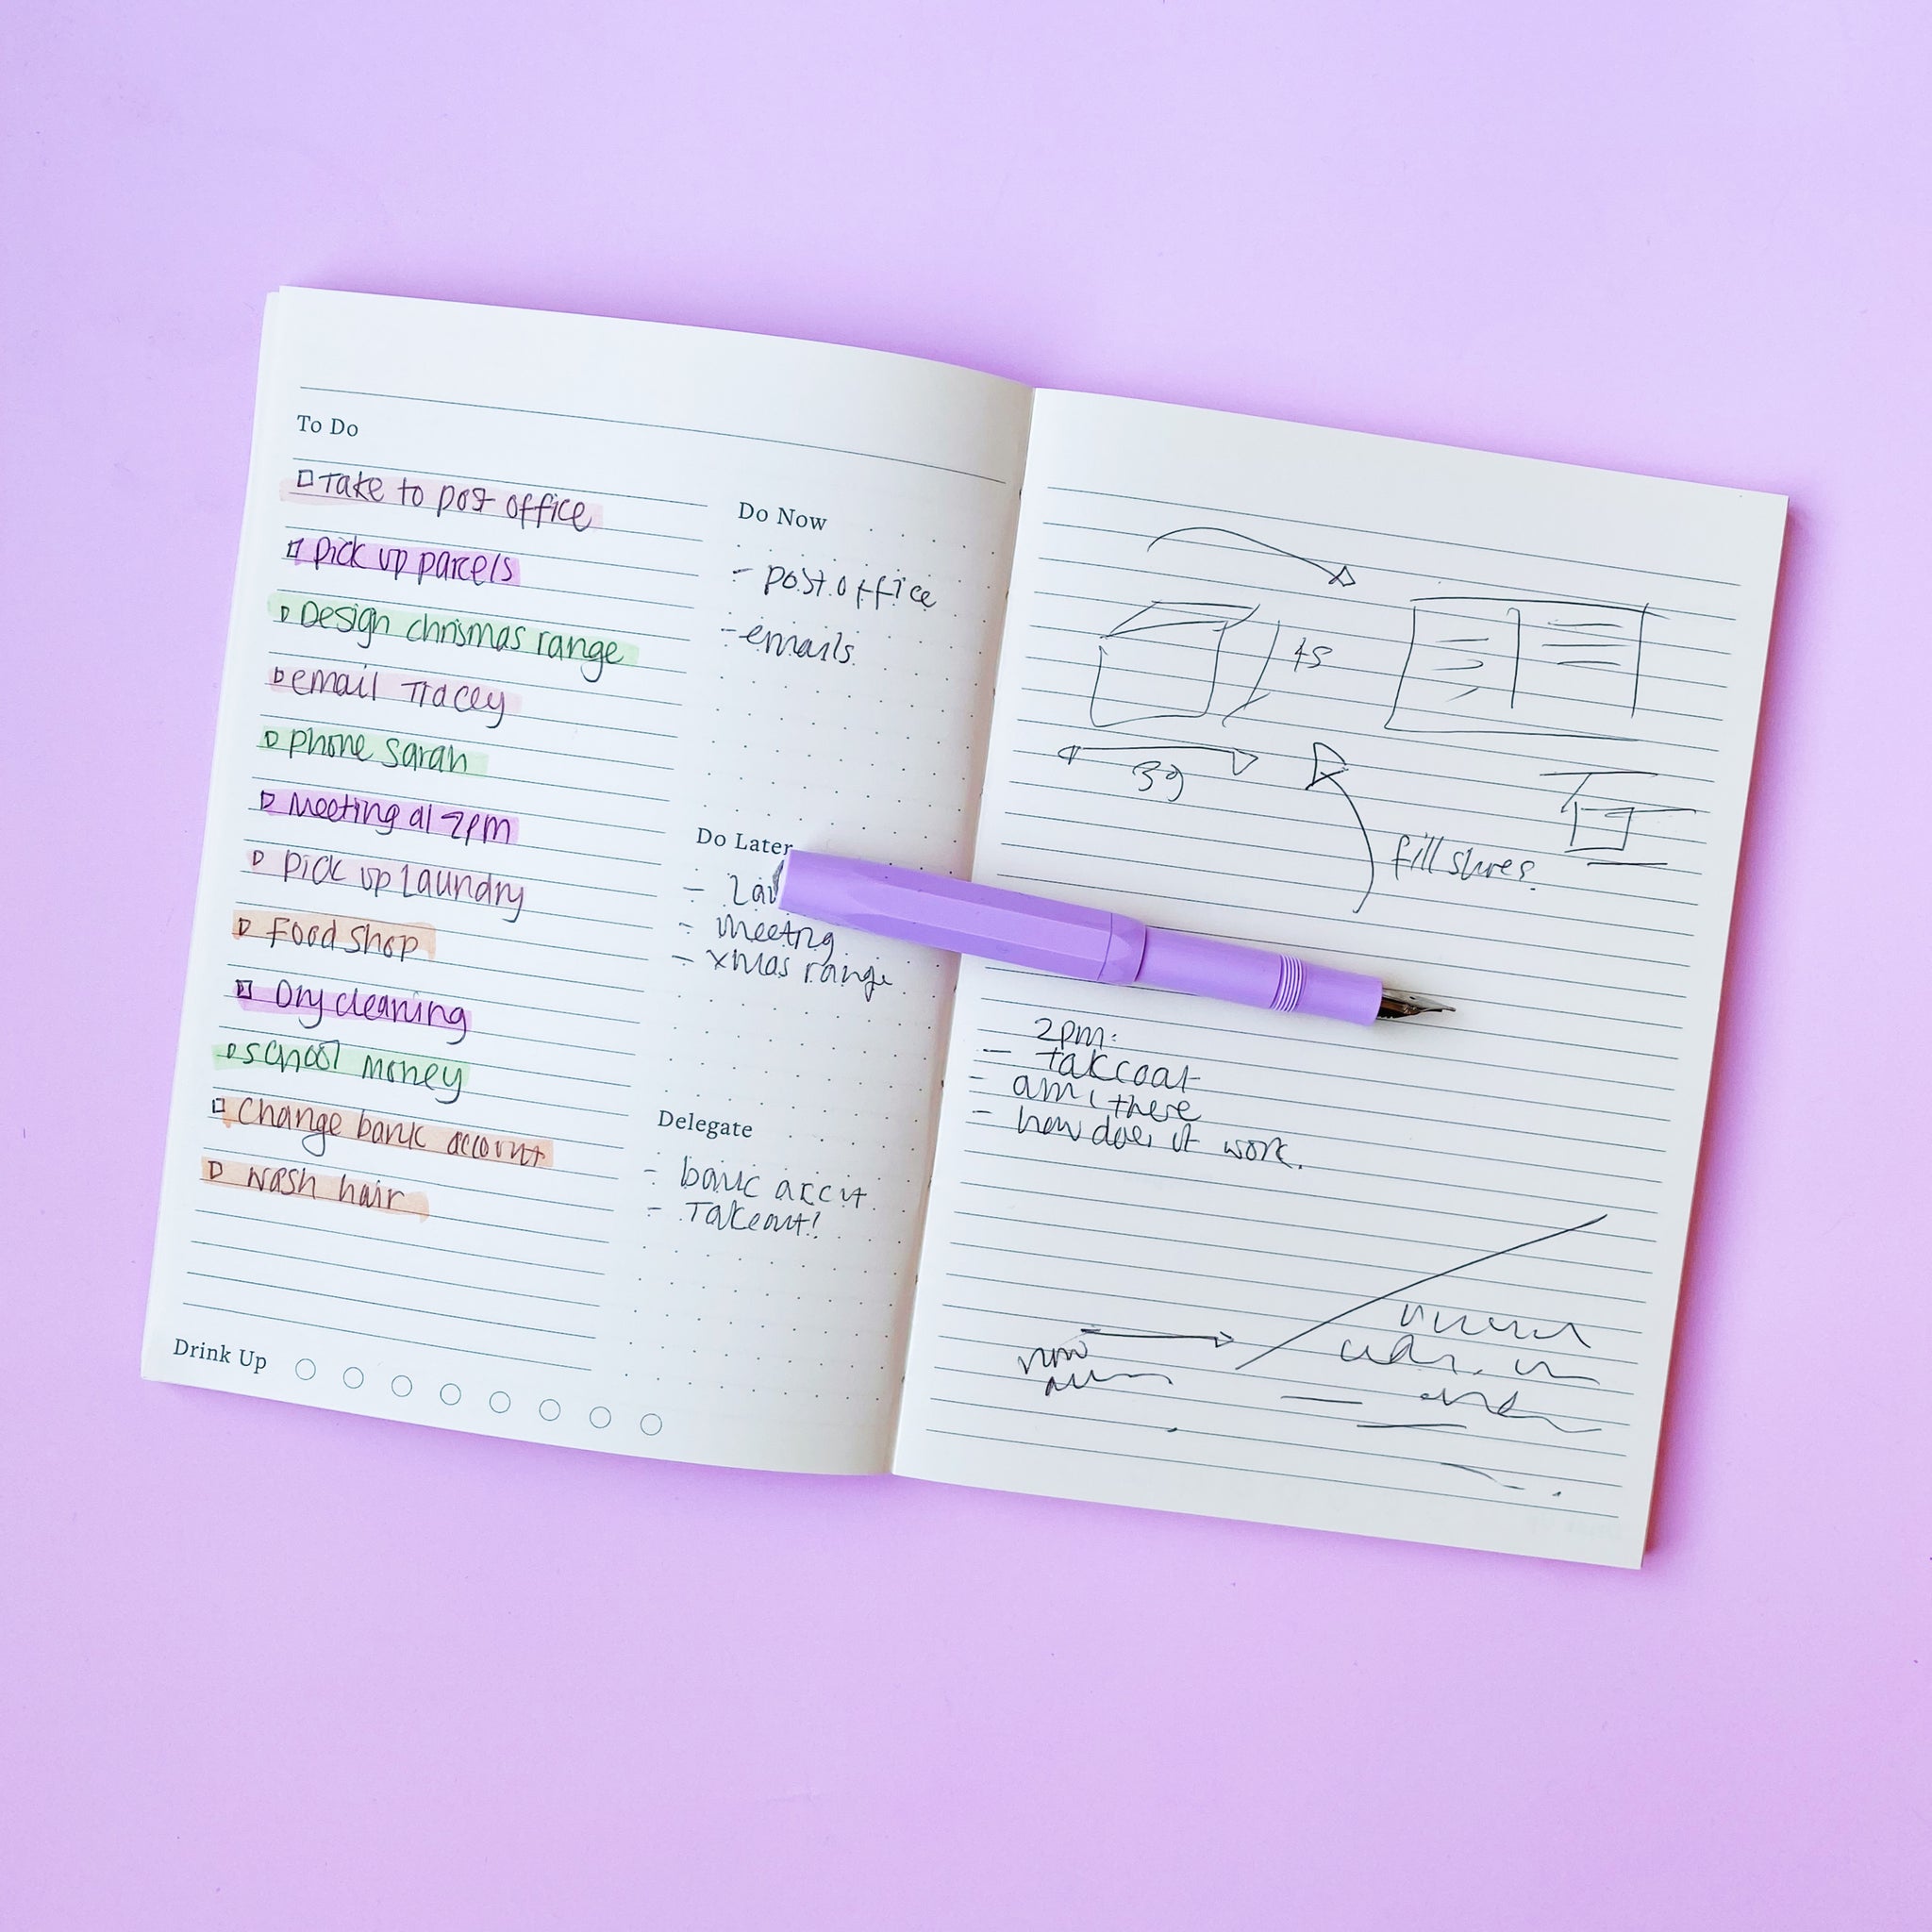 To Do
Take to post office
pick up parcels
Design chrismas range
email Tracey
phone Sarah
Meeting at 2pm
pick up Laundry
Food shop
Dry cleaning
school money
Change bank account
wash hair
Drink Up
Do Now
- post office
- emails
Do Later
- 
- meeting
- xmas range
Delegate
- bank acc
- Takeout!
45
39
fill
2pm:
- 
- am i there
- how does it work.